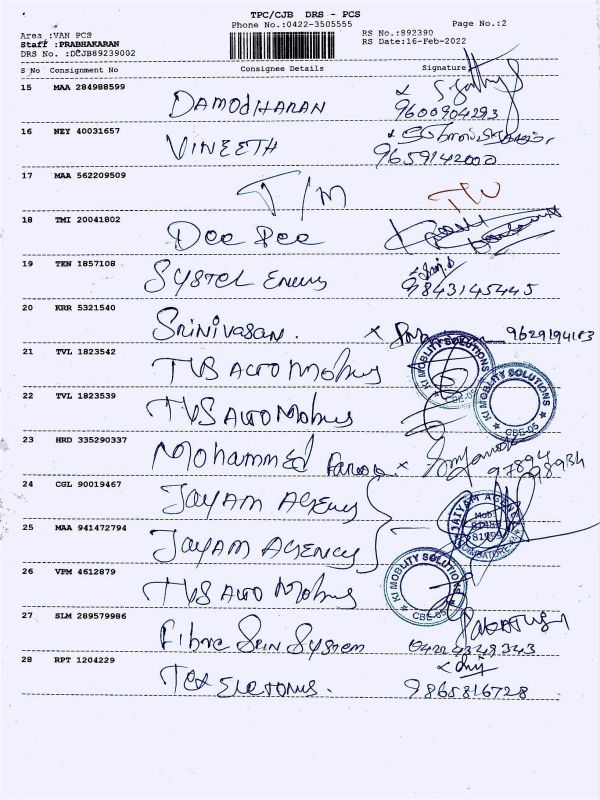 TPC/CJB DRS - PCS
Phone No.:0422-3505555 Page No.:2
Area :VAN PCS RS No.:892390
Staff :PRABHAKARAN RS Date:16-Feb-2022
DRS No. :DCJB89239002
S No Consignment No Consignee Details Signature
15 MAA 284988599 DAMODHARAN
9600904293
16 NEY 40031657 VINEETH
9659142000
17 MAA 562209509 T/M
18 TMI 20041802 Dee Dee
19 TEN 1857108
9843145445
20 KRR 5321540 Srinivasan. x 9629194183
21 TVL 1823542 TVS Auto Mobiles KI MOBLITY SOLUTIONS
22 TVL 1823539 TVS Auto Mobiles KI MOBLITY SOLUTIONS CBE-05
23 HRD 335290337 Mohammed
97894 98934
24 CGL 90019467 JAYAM AGency JAIYAM AGENCY
25 MAA 941472794 JAYAM AGENCY COIMBATORE
26 VPM 4612879 TVS Auto Mobiles KI MOBLITY SOLUTIONS CBE-05
27 SLM 289579986 Fibre System
0422 4349343
28 RPT 1204229 Tex
9865816728